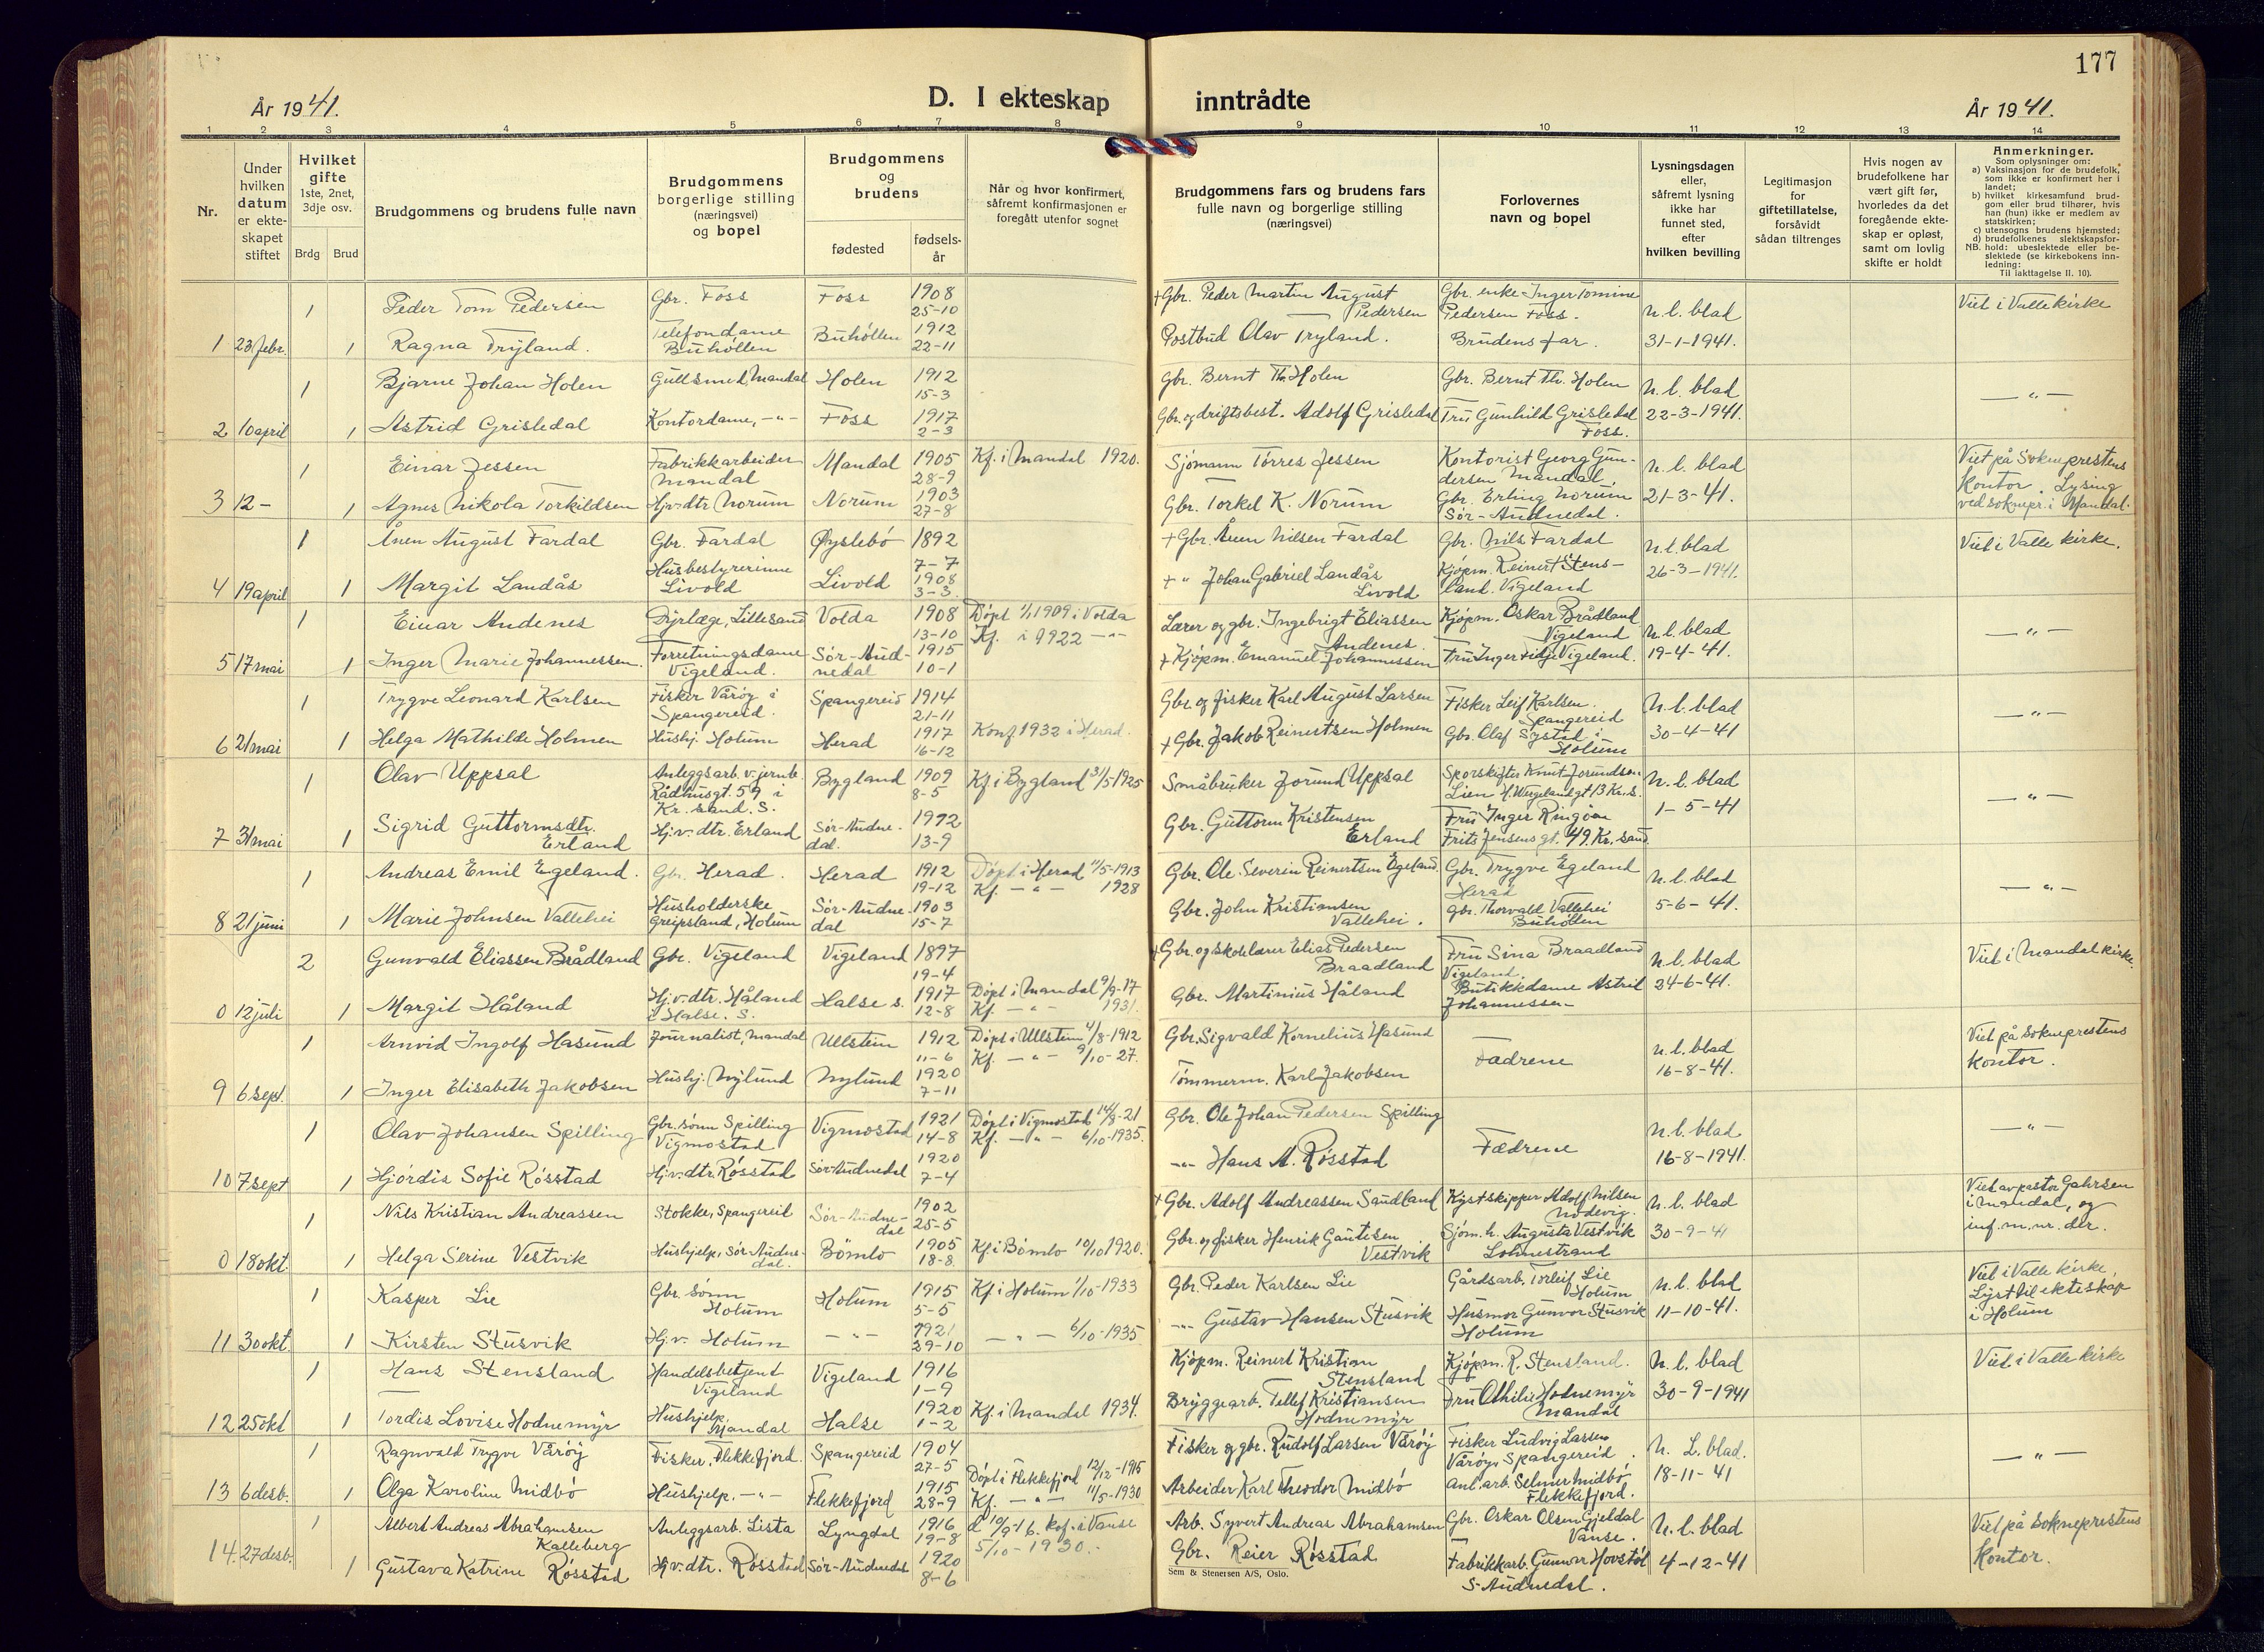 177
År 1941.
D. I ekteskap inntrådte
År 1941.
1 2 3 4 5 6 7 8 9 10 11 12 13 14
Nr.
Under hvilken datum er ekteskapet stiftet
Hvilket gifte 1ste, 2net, 3dje osv.
Brdg Brud
Brudgommens og brudens fulle navn
Brudgommens borgerlige stilling (næringsvei) og bopel
Brudgommens og brudens
fødested
fødselsår
Når og hvor konfirmert, såfremt konfirmasjonen er foregått utenfor sognet
Brudgommens fars og brudens fars fulle navn og borgerlige stilling (næringsvei)
Forlovernes navn og bopel
Lysningsdagen eller, såfremt lysning ikke har funnet sted, efter hvilken bevilling
Legitimasjon for giftetillatelse, forsåvidt sådan tiltrenges
Hvis nogen av brudefolkene har vært gift før, hvorledes da det foregående ekteskap er opløst, samt om lovlig skifte er holdt
Anmerkninger.
Som oplysninger om:
a) Vaksinasjon for de brudefolk, som ikke er konfirmert her i landet;
b) hvilket kirkesamfund brudgom eller brud tilhører, hvis han (hun) ikke er medlem av statskirken;
c) utensogns brudens hjemsted;
d) brudefolkenes slektskapsforhold: ubeslektede eller beslektede (se kirkebokens innledning:
NB. Til iakttagelse II. 10).
1 Peder Tom Pedersen Gbr. Foss Foss 1908 25-10 + Gbr. Peder Martin August Pedersen Gbr. enke Inger Tomine Pedersen Foss. n.l. blad Viet i Valle kirke
1 23 febr. 1 Ragna Tryland. Telefondame Buhöllen Buhöllen 1912 22-11 Postbud Olav Tryland. Brudens far. 31-1-1941.
1 Bjarne Johan Holen Gullsmed, Mandal Holen 1912 15-3 Gbr. Bernt Th. Holen Gbr. Bernt Th. Holen n.l. blad — " —
2 10 april 1 Astrid Grisledal Kontordame, -"- Foss 1917 2-3 Gbr. og driftsbest. Adolf Grisledal Fru Gunhild Grisledal Foss. 22-3-1941.
1 Einar Jessen Fabrikkarbeider Mandal Mandal 1905 28-9 Kf. i Mandal 1920. Sjömann Törres Jessen Kontorist Georg Gundersen Mandal. n.l. blad Viet på Sokneprestens kontor. Lysing ved soknepr. i Mandal.
3 12 - 1 Agnes Nikola Torkildsen Hjv. dtr. Norum Norum 1903 27-8 Gbr. Torkel K. Norum Gbr. Erling Norum Sör-Audnedal. 21-3-41.
1 Ånen August Fardal Gbr. Fardal Öyslebö 1892 7-7 + Gbr. Ånen Nilsen Fardal Gbr. Nils Fardal n.l. blad Viet i Valle kirke.
4 19 april 1 Margit Landås Husbestyrerinne Livold Livold 1908 3-3 + " Johan Gabriel Landås Livold Kjöpm. Reinert Stensland. Vigeland 26-3-1941.
1 Einar Andenes Dyrlæge, Lillesand Volda 1908 13-10 Döpt 1/1 1909 i Volda Kf. i 1922 -"- Lærer og gbr. Ingebrigt Eliassen Andenes. Kjöpm. Oskar Brådland Vigeland n.l. blad — " —
5 17 mai 1 Inger Marie Johannessen. Forretningsdame Vigeland. Sör-Audnedal 1915 10-1 + Kjöpm. Emanuel Johannessen Fru Inger Fidje Vigeland. 19-4-41.
1 Trygve Leonard Karlsen Fisker Våröy i Spangereid. Spangereid 1914 21-11 Gbr. og fisker Karl August Larsen Fisker Leif Karlsen. Spangereid n.l. blad — " —
6 21 mai 1 Helga Mathilde Holmen Hushj. Holum Herad 1917 16-12 Konf 1932 i Herad. + Gbr. Jakob Reinertsen Holmen Gbr. Olaf Systad i Holum 30-4-41
1 Olav Uppsal Anleggsarb. v. jernb. Rådhusgt. 59 i Kr. sand. S. Bygland 1909 8-5 Kf i Bygland 31/5 1925 Småbruker Jorund Uppsal Sporskifter Knut Jorundsen Lien H. Wergelandgt 13 Kr.s. n.l. blad — " —
7 31 mai 1 Sigrid Guttormsdtr. Erland Hj.v. dtr. Erland Sör-Audnedal. 1912 13-9 Gbr. Guttorm Kristensen Erland Fru Inger Ringöen Frits Jensens gt. 49. Kr. sand. 1-5-41
1 Andreas Emil Egeland. Gbr. Herad. Herad 1912 19-12 Döpt i Herad 11/5-1913 Kf. — " — 1928 Gbr. Ole Severin Reinertsen Egeland Gbr. Trygve Egeland Herad n.l. blad — " —
8 21 juni 1 Marie Johnsen Vallehei Husholderske Greipsland, Holum Sör-Audnedal 1903 15-7 Gbr. John Kristiansen Vallehei. Gbr. Thorvald Vallehei Buhöllen 5-6-41.
2 Gunvald Eliassen Brådland Gbr. Vigeland Vigeland 1897 19-4 + Gbr. og skolelærer Elias Pedersen Braadland Fru Sina Braadland Vigeland. n.l. blad Viet i Mandal kirke.
0 12 juli 1 Margit Håland Hj.v. dtr. Håland i Halse. S. Halse s. 1917 12-8 Döpt i Mandal 9/9-17 Kf. — " — 1931. Gbr. Martinius Håland Butikkdame Astrid Johannessen 24-6-41.
1 Arnvid Ingolf Hasund Journalist, Mandal Ullstein 1912 11-6 Döpt i Ullstein 4/8-1912 Kf. — " — 9/10-27. Gbr. Sigvald Kornelius Hasund Fædrene n.l. blad 16-8-41. Viet på sokneprestens kontor.
9 6 sept. 1 Inger Elisabeth Jakobsen Hushj. Nylund Nylund 1920 7-11 Tömmerm. Karl Jakobsen
1 Olav Johansen Spilling Gbr. sönn Spilling Vigmostad Vigmostad 1921 14-8 Döpt i Vigmostad 14/8-21 Kf. — " — 6/10-1935. Gbr. Ole Johan Pedersen Spilling Fædrene n.l. blad 16-8-1941. — " —
10 7 sept 1 Hjördis Sofie Rösstad Hj.v. dtr Rösstad Sör-Audnedal 1920 7-4 -"- Hans A. Rösstad
1 Nils Kristian Andreassen Stokke, Spangereid Sör-Audnedal 1902 25-5 + Gbr. Adolf Andreassen Sandland Kystskipper Adolf Nilsen Nodevig. n.l. blad Viet av pastor Gahrsen i Mandal, og inf. m. nr. der.
0 18 okt. 1 Helga Serine Vestvik Hushjelp, Sör-Audnedal. Bömlo 1905 18-8. Kf i Bömlo 10/10 1920. Gbr. og fisker Henrik Gautesen Vestvik Sjöm. h. Augusta Vestvik Lohnestrand 30-9-41
1 Kasper Lie Gbr. sönn Holum Holum 1915 5-5 Kf. i Holum 1/10-1933 Gbr. Peder Karlsen Lie Gårdsarb. Torleif Lie Holum n.l. blad Viet i Valle kirke. Lyst til ekteskap i Holum
11 30 okt. 1 Kirsten Stusvik Hj.v. Holum -"- 1921 29-10 — " — 6/10-1935 -"- Gustav Hansen Stusvik Husmor Gunvor Stusvik Holum 11-10-41.
1 Hans Stensland Handelsbetjent Vigeland Vigeland 1916 1-9 Kjöpm. Reinert Kristian Stensland Kjöpm. R. Stensland. n.l. blad Viet i Valle kirke
12 25 okt 1 Tordis Lovise Hodnemyr Hushjelp, Mandal Halse 1920 1-2 Kf. i Mandal 1934. Bryggearb. Tellef Kristiansen Hodnemyr Fru Othilie Hodnemyr Mandal 30-9-1941
1 Ragnvald Trygve Våröy Fisker, Flekkefjord. Spangereid 1904 27-5 Fisker og gbr. Rudolf Larsen Våröy Fisker Ludvig Larsen Våröy, Spangereid. n. L. blad. — " —
13 6 desb. 1 Olga Karoline Midbö Hushjelp. -"- Flekkefjord 1915 28-9 Döpt i Flekkefjord 12/12-1915 Kf. — " — 11/5-1930 Arbeider Karl Theodor Midbö Anl. arb. Selmer Midbö Flekkefjord. 18-11-41
1 Albert Andreas Abrahamsen Kalleberg Anleggsarb. Lista Lyngdal 1916 19-8 d 10/9-16. Kof. i Vanse 5/10-1930.- Arb. Syvert Andreas Abrahamsen Gbr. Oskar Olsen Gjeldal Vanse. n.l. blad Viet på Sokneprestens kontor.
14. 27 desb. 1 Gustava Katrine Rösstad Hj.v. dtr. Rösstad Sör-Audnedal 1920 8-6 Gbr. Reier Rösstad Fabrikkarb. Gunnar Hovstöl S-Audnedal. 4-12-41
Sem & Stenersen A/S, Oslo.